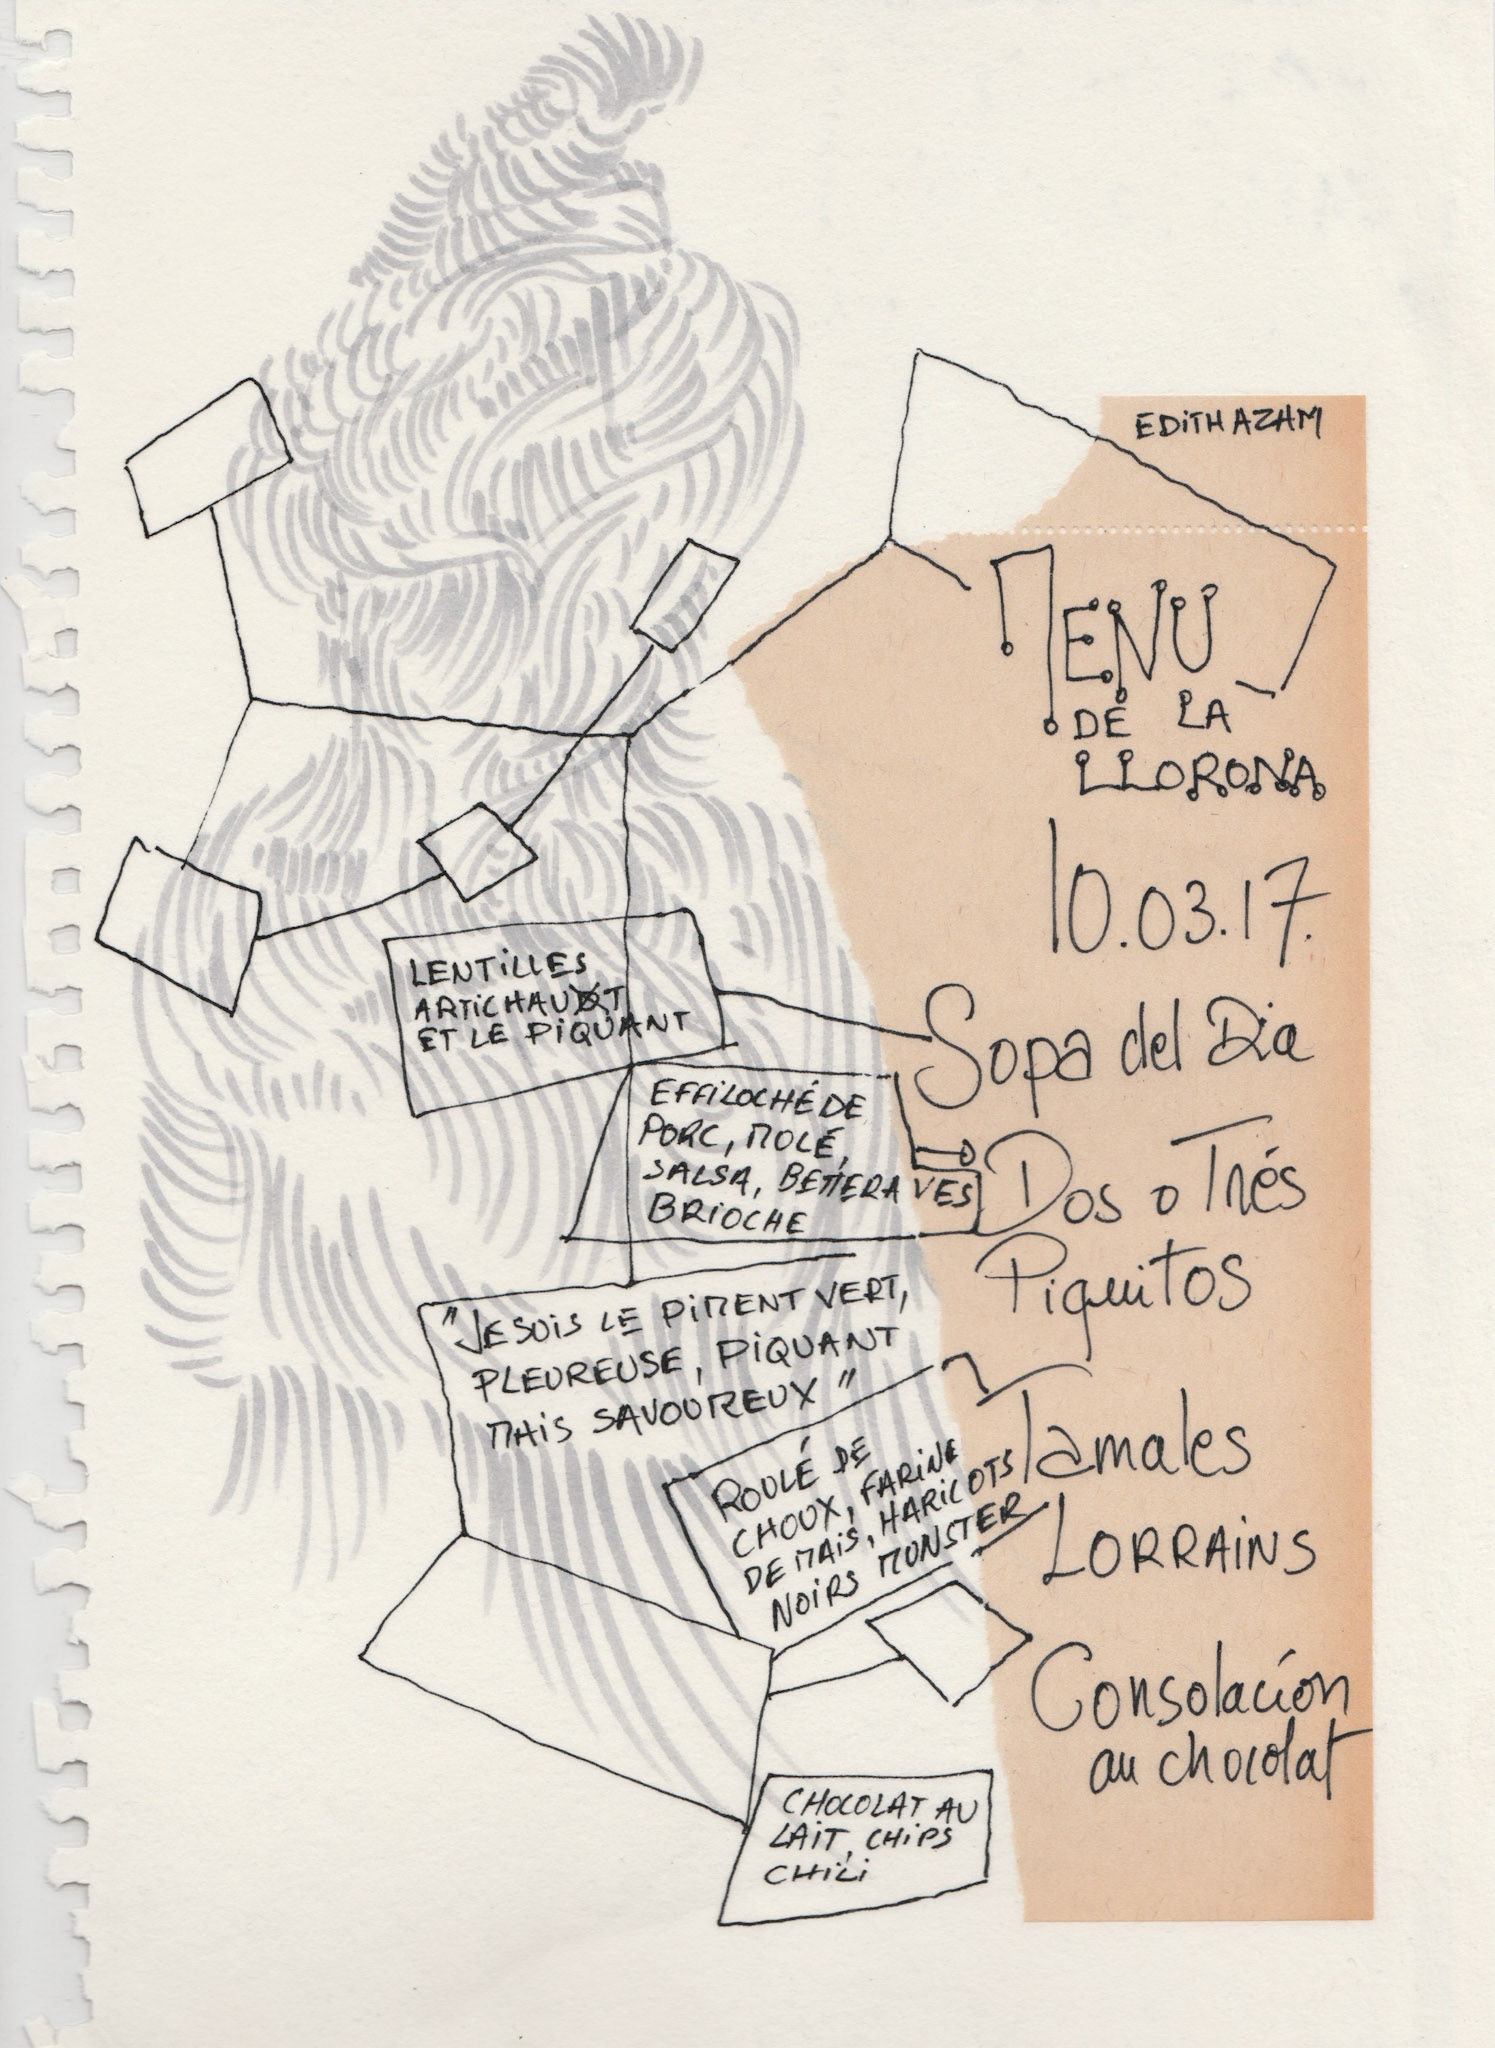 EDITH AZAM
MENU
DE LA
LLORONA
10.03.17.
Sopa del Dia
LENTILLES
ARTICHAUT
ET LE PIQUANT
Dos o Trés
Piquitos
EFFILOCHÉ DE
PORC, MOLÉ,
SALSA, BETTERAVES
BRIOCHE
"JE SUIS LE PIMENT VERT,
PLEUREUSE, PIQUANT
MAIS SAVOUREUX"
Tamales
LORRAINS
ROULÉ DE
CHOUX, FARINE
DE MAIS, HARICOTS
NOIRS MUNSTER
Consolación
au chocolat
CHOCOLAT AU
LAIT, CHIPS
CHILI